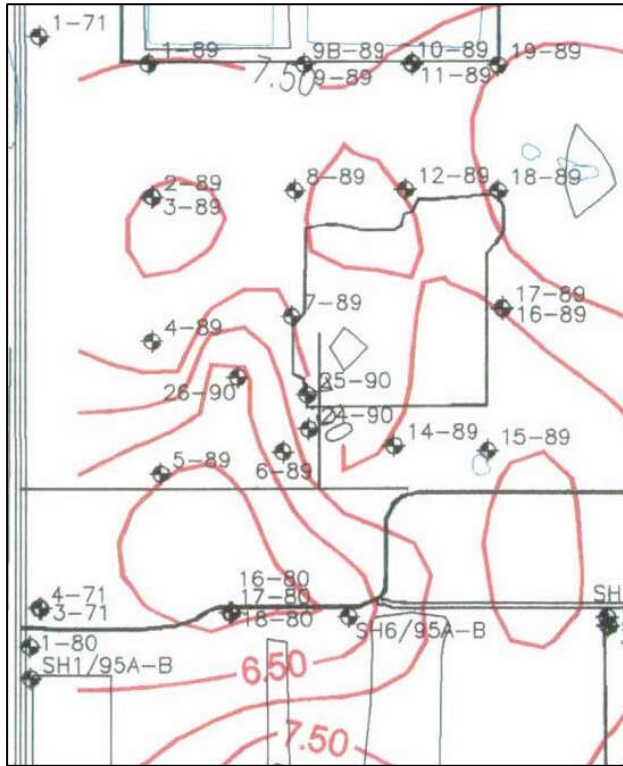 1-71
1-89
9B-89
10-89
19-89
7.50
9-89
11-89
2-89
3-89
8-89
12-89
18-89
17-89
16-89
7-89
4-89
26-90
25-90
24-90
14-89
15-89
6-89
5-89
16-80
17-80
18-80
4-71
3-71
SH6/95A-B
SH
1-80
SH1/95A-B
6.50
7.50